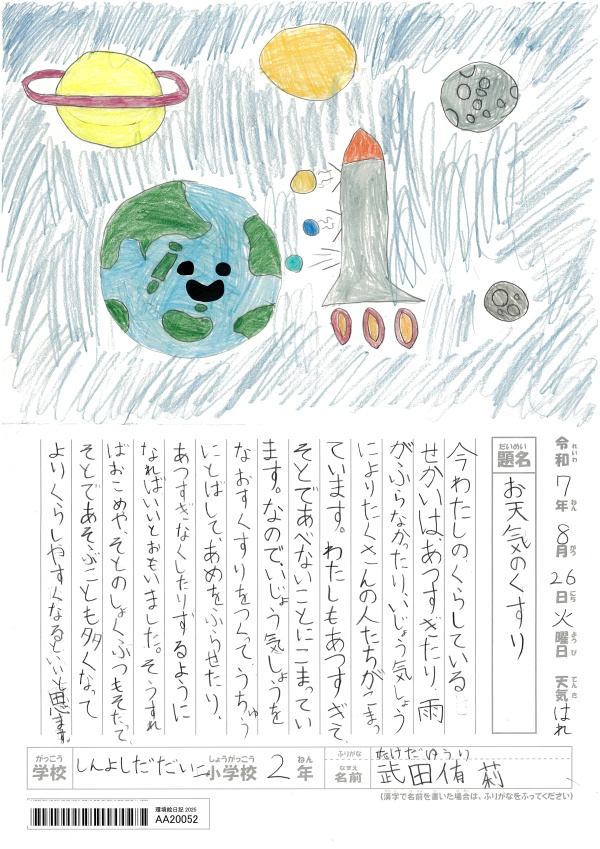 令和7年8月26日火曜日 天気はれ
れいわ ねん がつ にち ようび てんき
だいめい
題名 お天気のくすり
今わたしのくらしている
せかいは、あつすぎたり、雨
がふらなかったり、いじょう気しょう
によりたくさんの人たちがこまっ
ています。わたしもあつすぎて、
そとであそべないことにこまってい
ます。なので、いじょう気しょうを
なおすくすりをつくて、うちゅう
にとばして、あめをふらせたり、
あつすぎなくしたりするように
なればいいとおもいました。そうすれ
ばおこめやそとのしょくぶつもそだって、
そとであそぶことも多くなって
よりくらしやすくなるといいと思います。
がっこう しょうがっこう ねん
学校 しんよしだだいに小学校 2年
ふりがな たけだゆうり
なまえ
名前 武田侑莉
(漢字で名前を書いた場合は、ふりがなをふってください)
環境絵日記 2025
AA20052